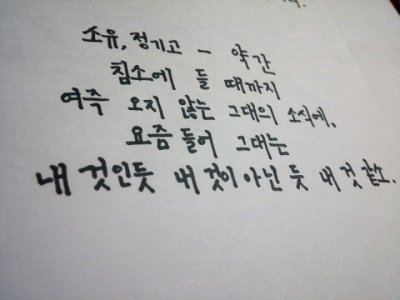 소유, 정기고 - 약간
침소에 들 때까지
여즉 오지 않는 그대의 소식에,
요즘 들어 그대는
내 것인듯 내 것이 아닌 듯 내 것 같소.